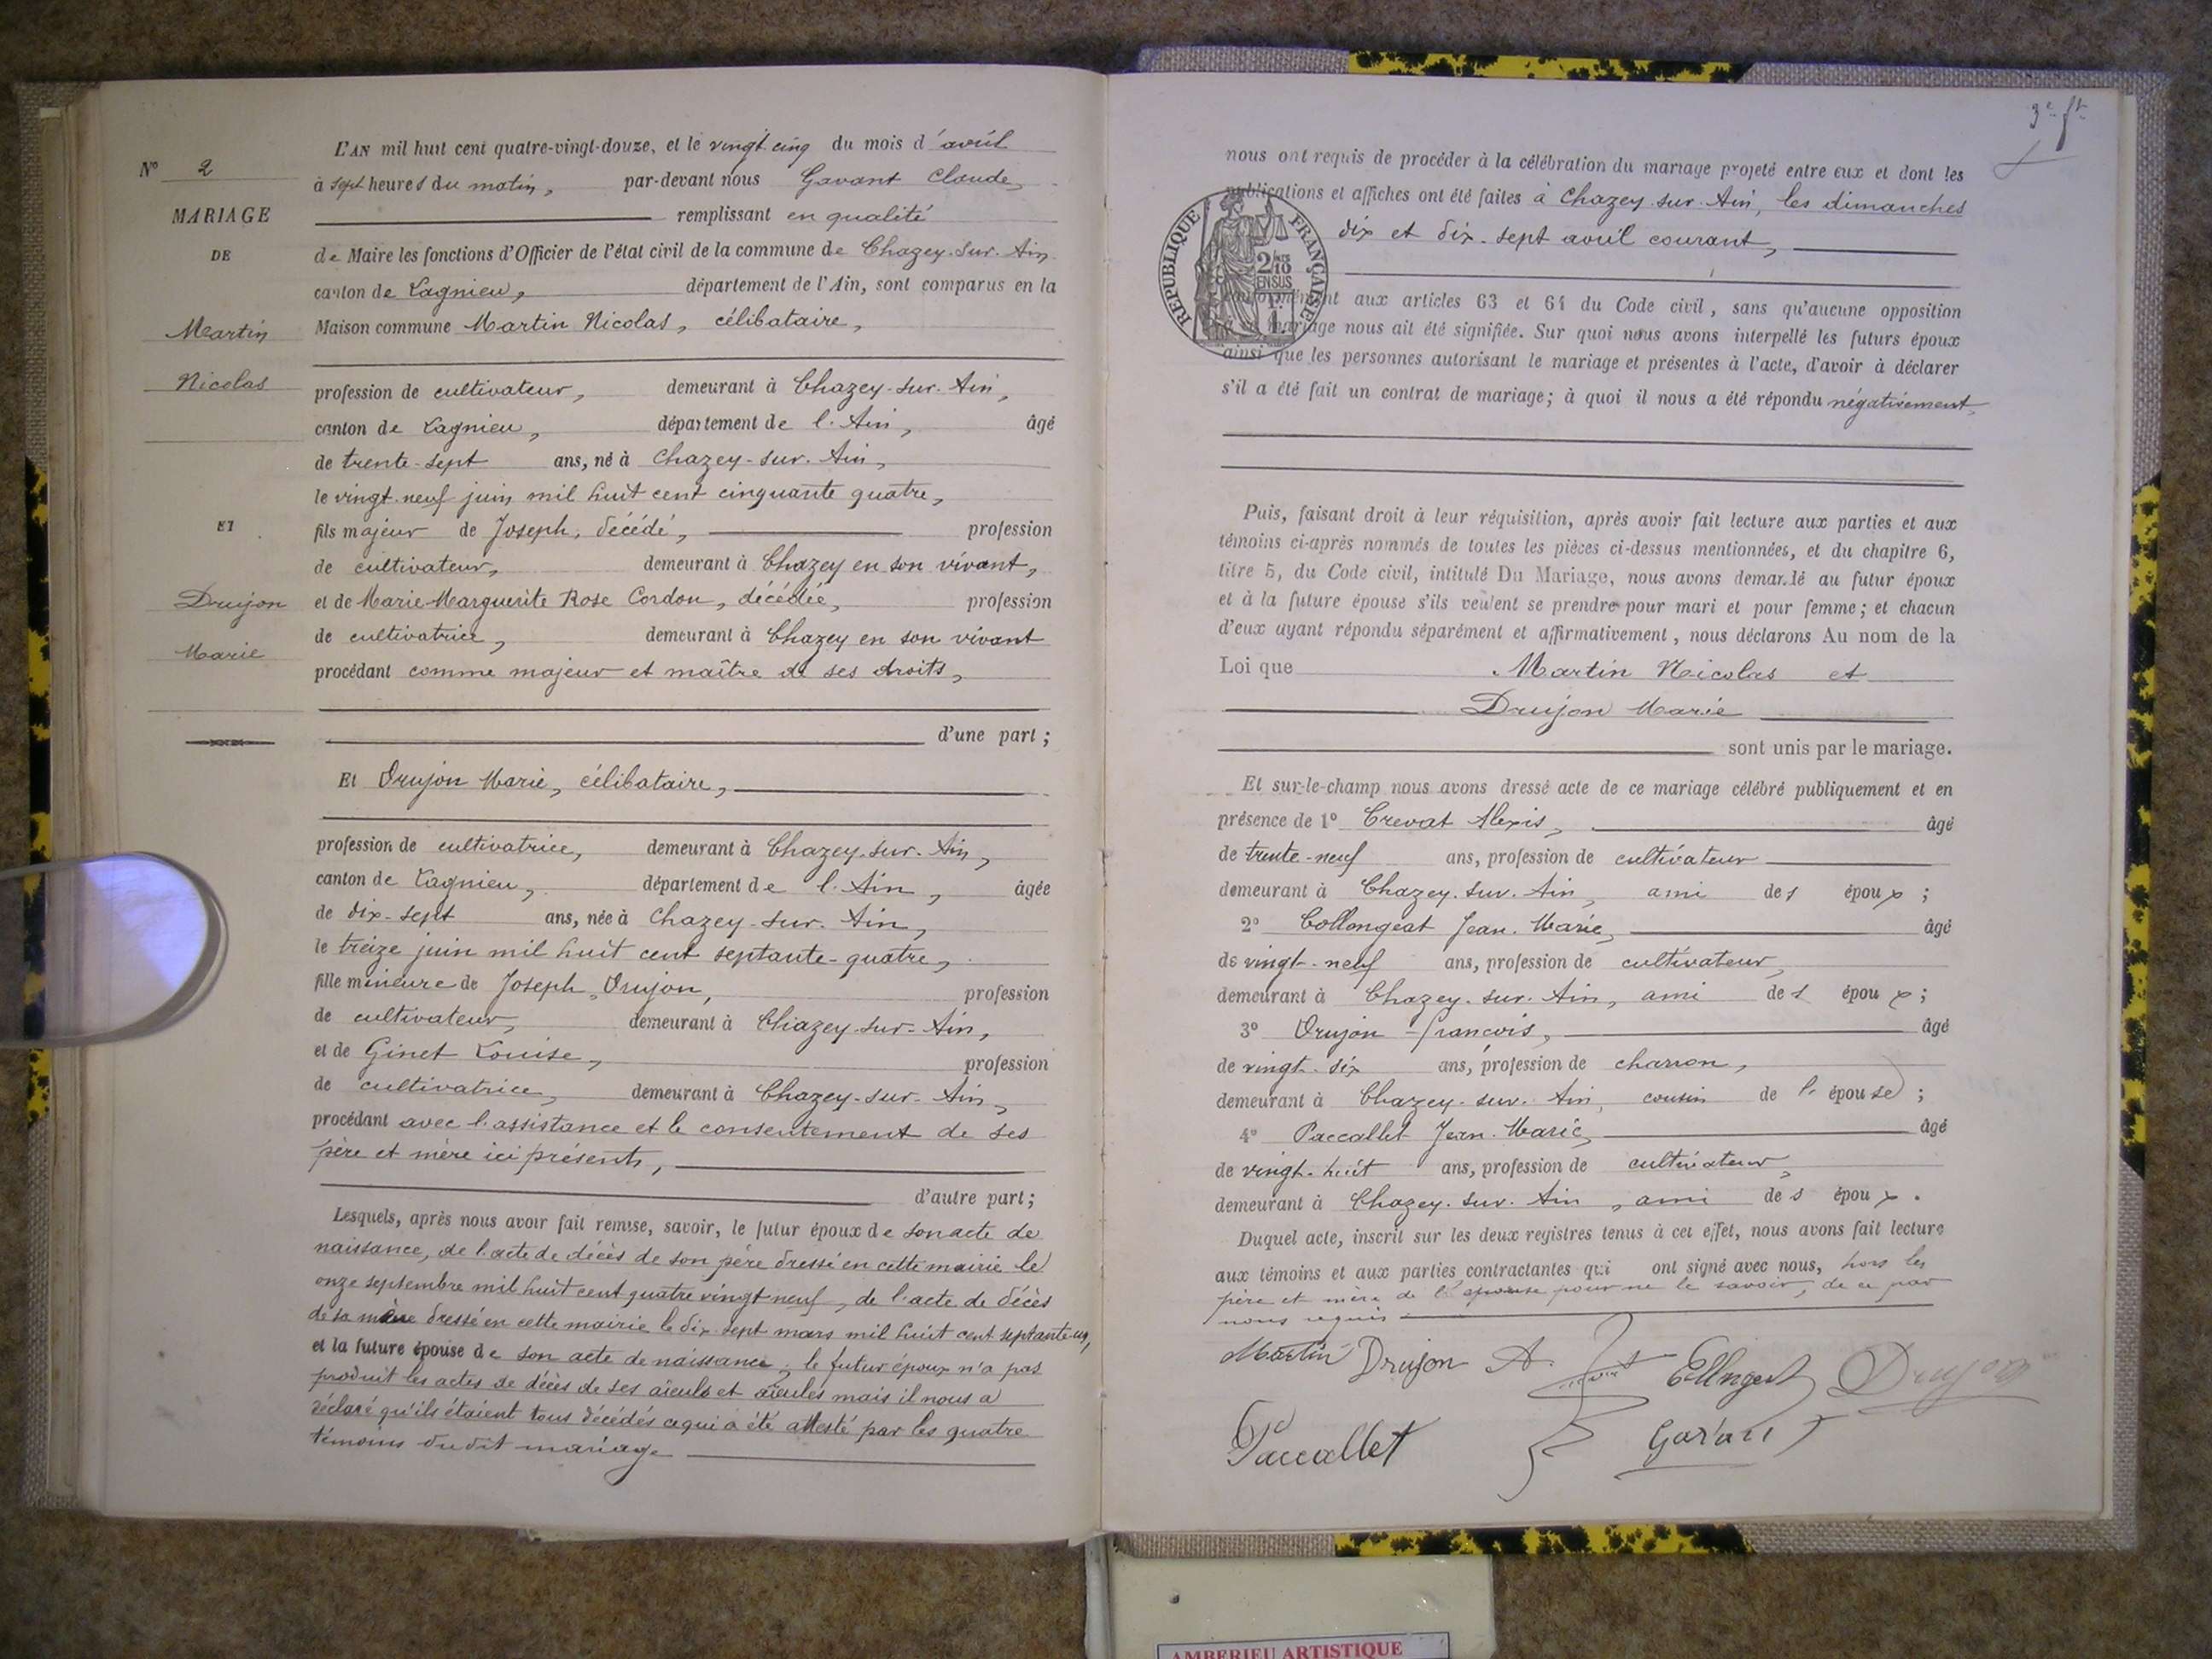 L'AN mil huit cent quatre-vingt-douze, et le vingt cinq du mois d'avril
N° 2
à sept heures du matin, par-devant nous Gavant Claude,
MARIAGE
remplissant en qualité
DE
de Maire les fonctions d'Officier de l'état civil de la commune de Chazey-sur-Ain
canton de Lagnieu, département de l'Ain, sont comparus en la
Martin
Maison commune Martin Nicolas, célibataire,
Nicolas
profession de cultivateur, demeurant à Chazey-sur-Ain,
canton de Lagnieu, département de l'Ain, âgé
de trente-sept ans, né à Chazey-sur-Ain,
le vingt-neuf juin mil huit cent cinquante quatre,
ET
fils majeur de Joseph, décédé, profession
de cultivateur, demeurant à Chazey en son vivant,
Drujon
et de Marie Marguerite Rose Cordon, décédée, profession
de cultivatrice, demeurant à Chazey en son vivant
Marie
procédant comme majeur et maître de ses droits,
d'une part;
Et Drujon Marie, célibataire,
profession de cultivatrice, demeurant à Chazey-sur-Ain,
canton de Lagnieu, département de l'Ain, âgée
de dix-sept ans, née à Chazey-sur-Ain,
le treize juin mil huit cent septante-quatre,
fille mineure de Joseph Drujon, profession
de cultivateur, demeurant à Chazey-sur-Ain,
et de Ginet Louise, profession
de cultivatrice, demeurant à Chazey-sur-Ain,
procédant avec l'assistance et le consentement de ses
père et mère ici présents,
d'autre part;
Lesquels, après nous avoir fait remise, savoir, le futur époux de son acte de
naissance, de l'acte de décès de son père dressé en cette mairie le
onze septembre mil huit cent quatre vingt neuf, de l'acte de décès
de sa mère dressé en cette mairie le dix-sept mars mil huit cent septante-un,
et la future épouse de son acte de naissance; le futur époux n'a pas
produit les actes de décès de ses aïeuls et aïeules mais il nous a
déclaré qu'ils étaient tous décédés ce qui a été attesté par les quatre
témoins du dit mariage
3e ft
nous ont requis de procéder à la célébration du mariage projeté entre eux et dont les
publications et affiches ont été faites à Chazey-sur-Ain, les dimanches
dix et dix-sept avril courant,
REPUBLIQUE FRANÇAISE
2/10 EN SUS
conformément aux articles 63 et 64 du Code civil, sans qu'aucune opposition
à ce mariage nous ait été signifiée. Sur quoi nous avons interpellé les futurs époux
ainsi que les personnes autorisant le mariage et présentes à l'acte, d'avoir à déclarer
s'il a été fait un contrat de mariage; à quoi il nous a été répondu négativement,
Puis, faisant droit à leur réquisition, après avoir fait lecture aux parties et aux
témoins ci-après nommés de toutes les pièces ci-dessus mentionnées, et du chapitre 6,
titre 5, du Code civil, intitulé Du Mariage, nous avons demandé au futur époux
et à la future épouse s'ils veulent se prendre pour mari et pour femme; et chacun
d'eux ayant répondu séparément et affirmativement, nous déclarons Au nom de la
Loi que Martin Nicolas et
Drujon Marie
sont unis par le mariage.
Et sur-le-champ nous avons dressé acte de ce mariage célébré publiquement et en
présence de 1° Crevat Alexis, âgé
de trente-neuf ans, profession de cultivateur
demeurant à Chazey-sur-Ain, ami des époux;
2° Collongeat Jean-Marie, âgé
de vingt-neuf ans, profession de cultivateur,
demeurant à Chazey-sur-Ain, ami des époux;
3° Drujon François, âgé
de vingt-six ans, profession de charron,
demeurant à Chazey-sur-Ain, cousin de l'épouse;
4° Paccallet Jean-Marie, âgé
de vingt-huit ans, profession de cultivateur,
demeurant à Chazey-sur-Ain, ami des époux.
Duquel acte, inscrit sur les deux registres tenus à cet effet, nous avons fait lecture
aux témoins et aux parties contractantes qui ont signé avec nous, hors les
père et mère de l'épouse pour ne le savoir, de ce par
nous requis
Martin Drujon A. Drujon
Paccallet Gavant
AMBERIEU ARTISTIQUE